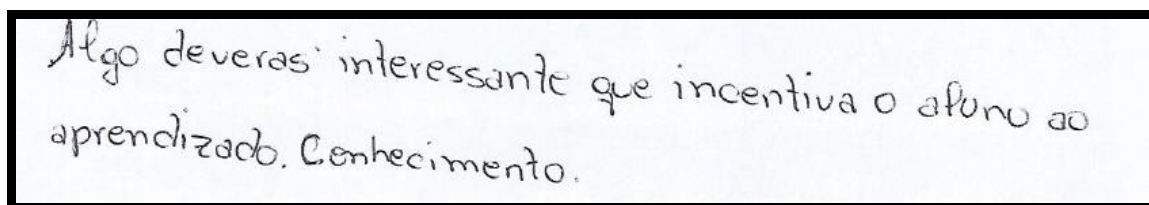 Algo deveras interessante que incentiva o aluno ao
aprendizado. Conhecimento.